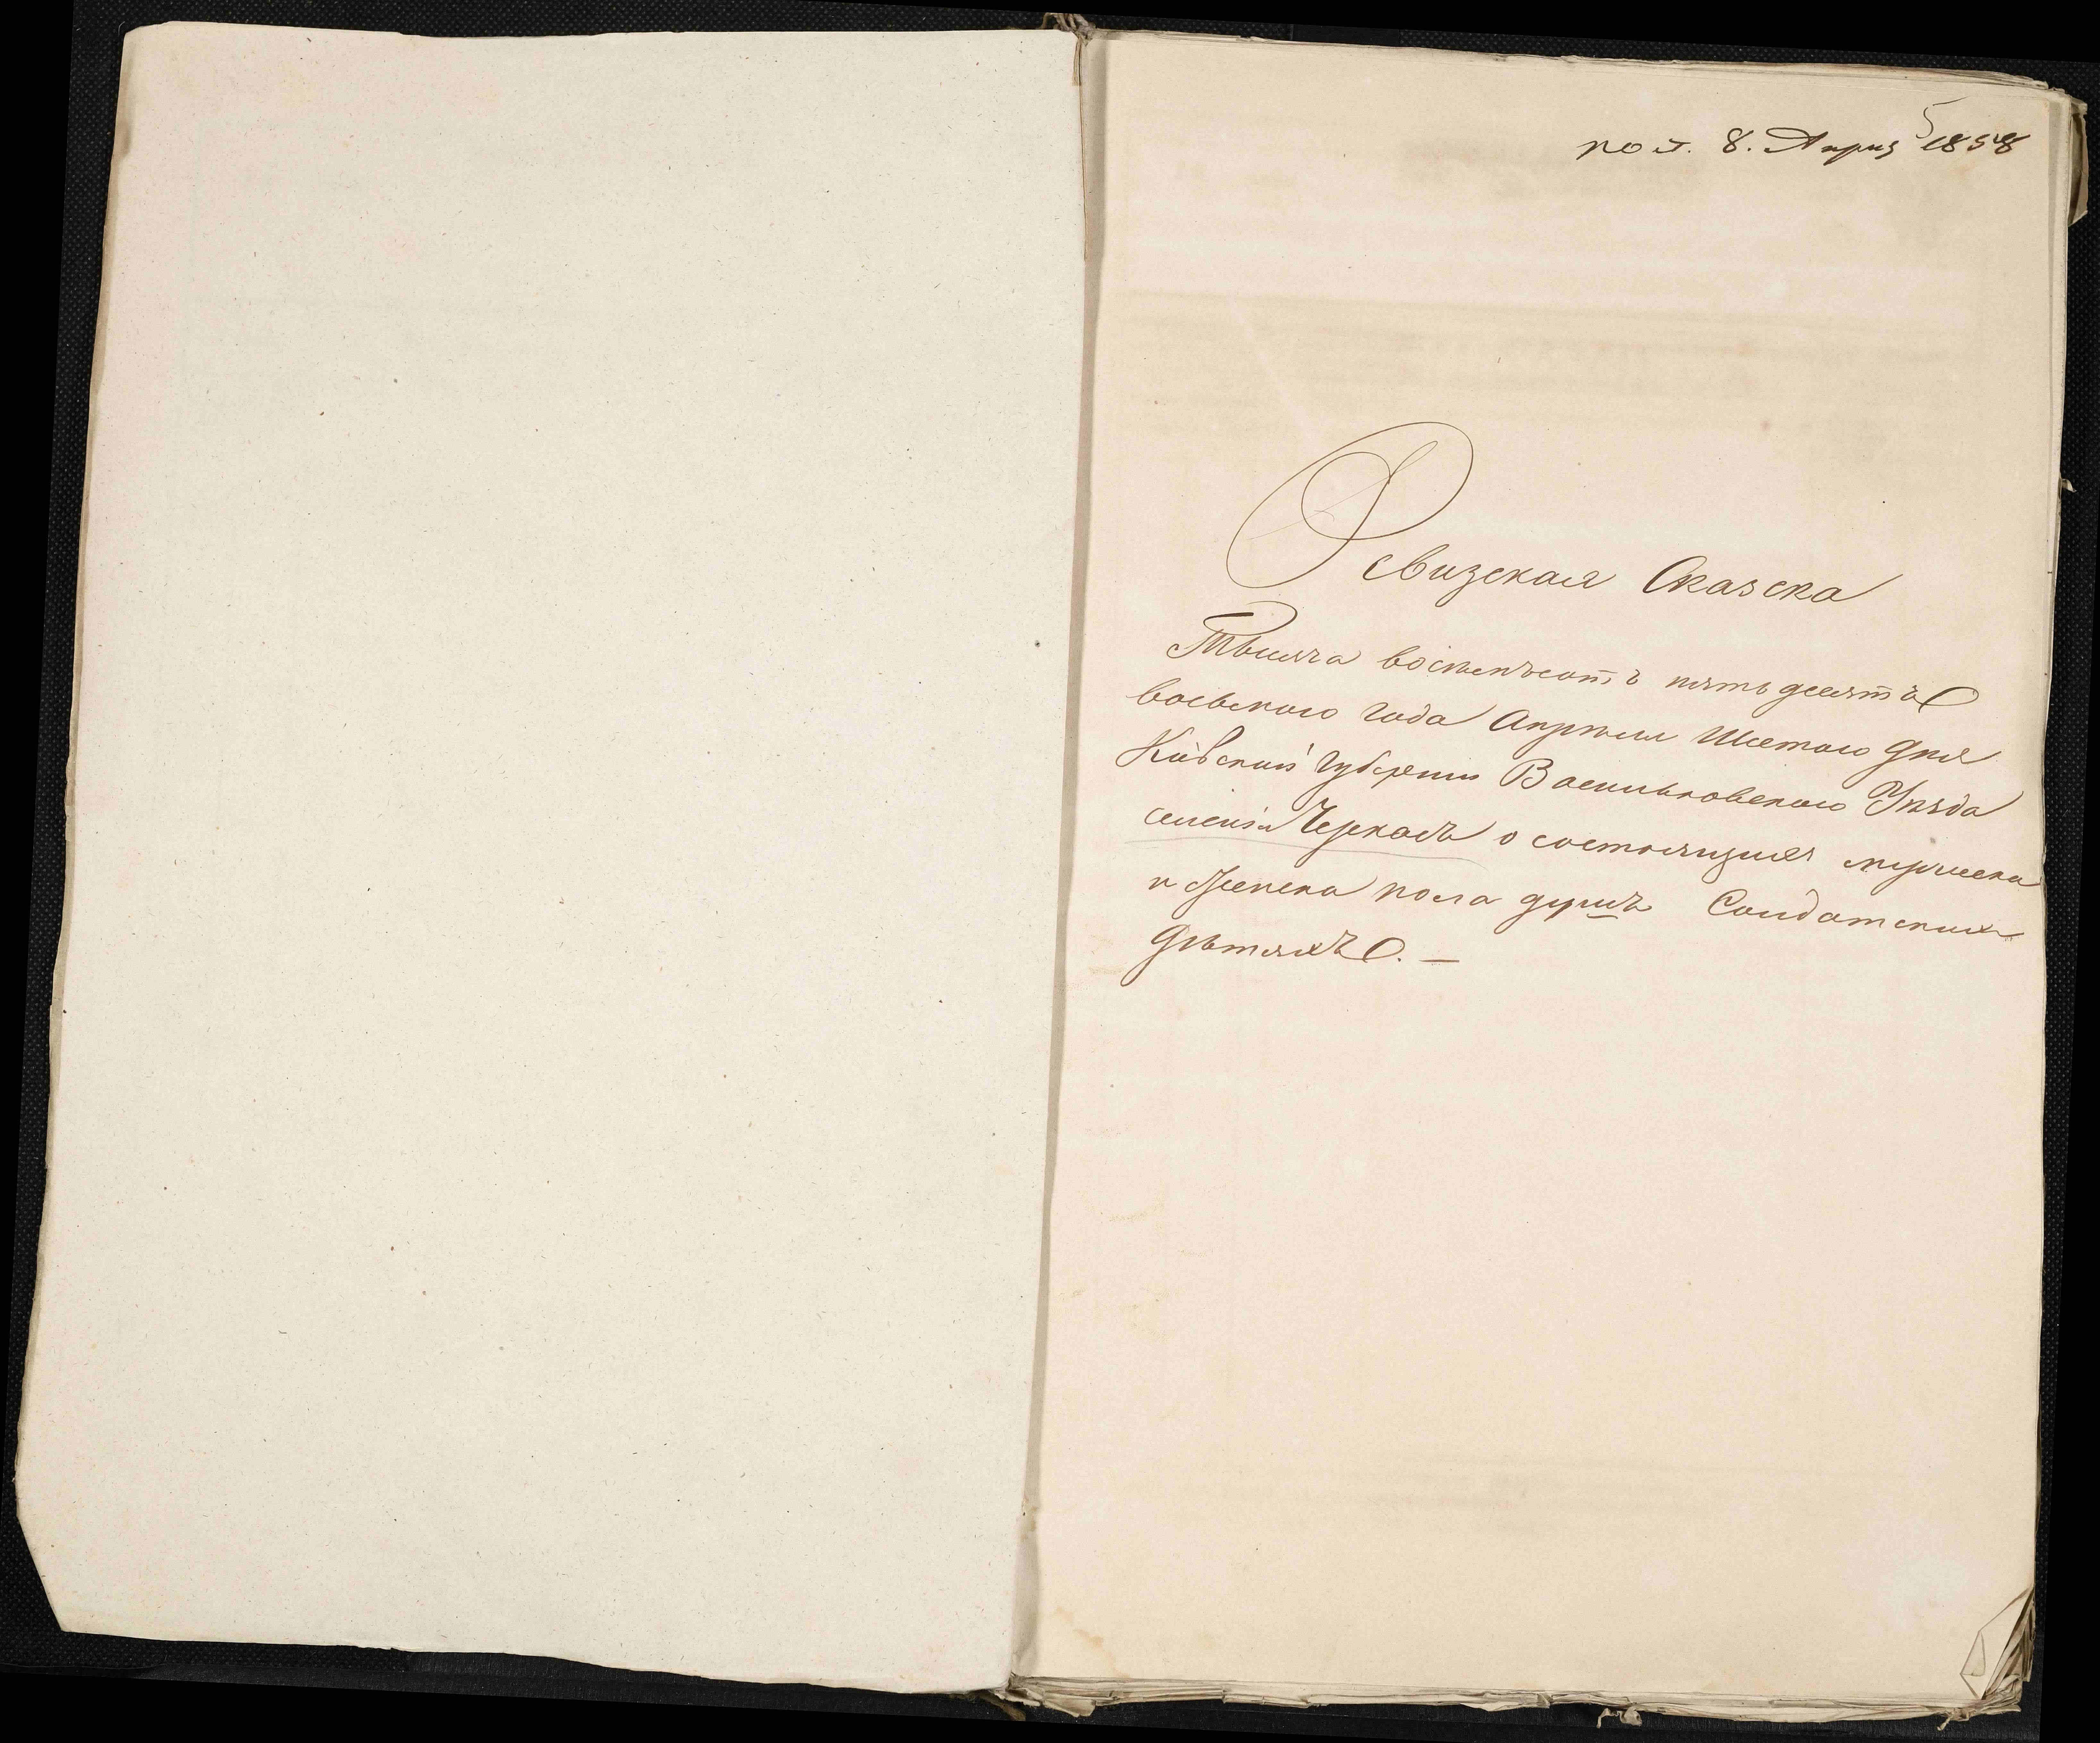 5
пол. 8. Апрѣ 1858
Ревизская Сказска
Тысяча восѣмьсотъ пятьдесятъ
восьмого года Апрѣля Шестого дня
Кіевской губерніи Васильковского Уѣзда
селенія Черкасъ о состоящихъ мужеска
и женска пола душъ Солдатскихъ
Дѣтяхъ. —